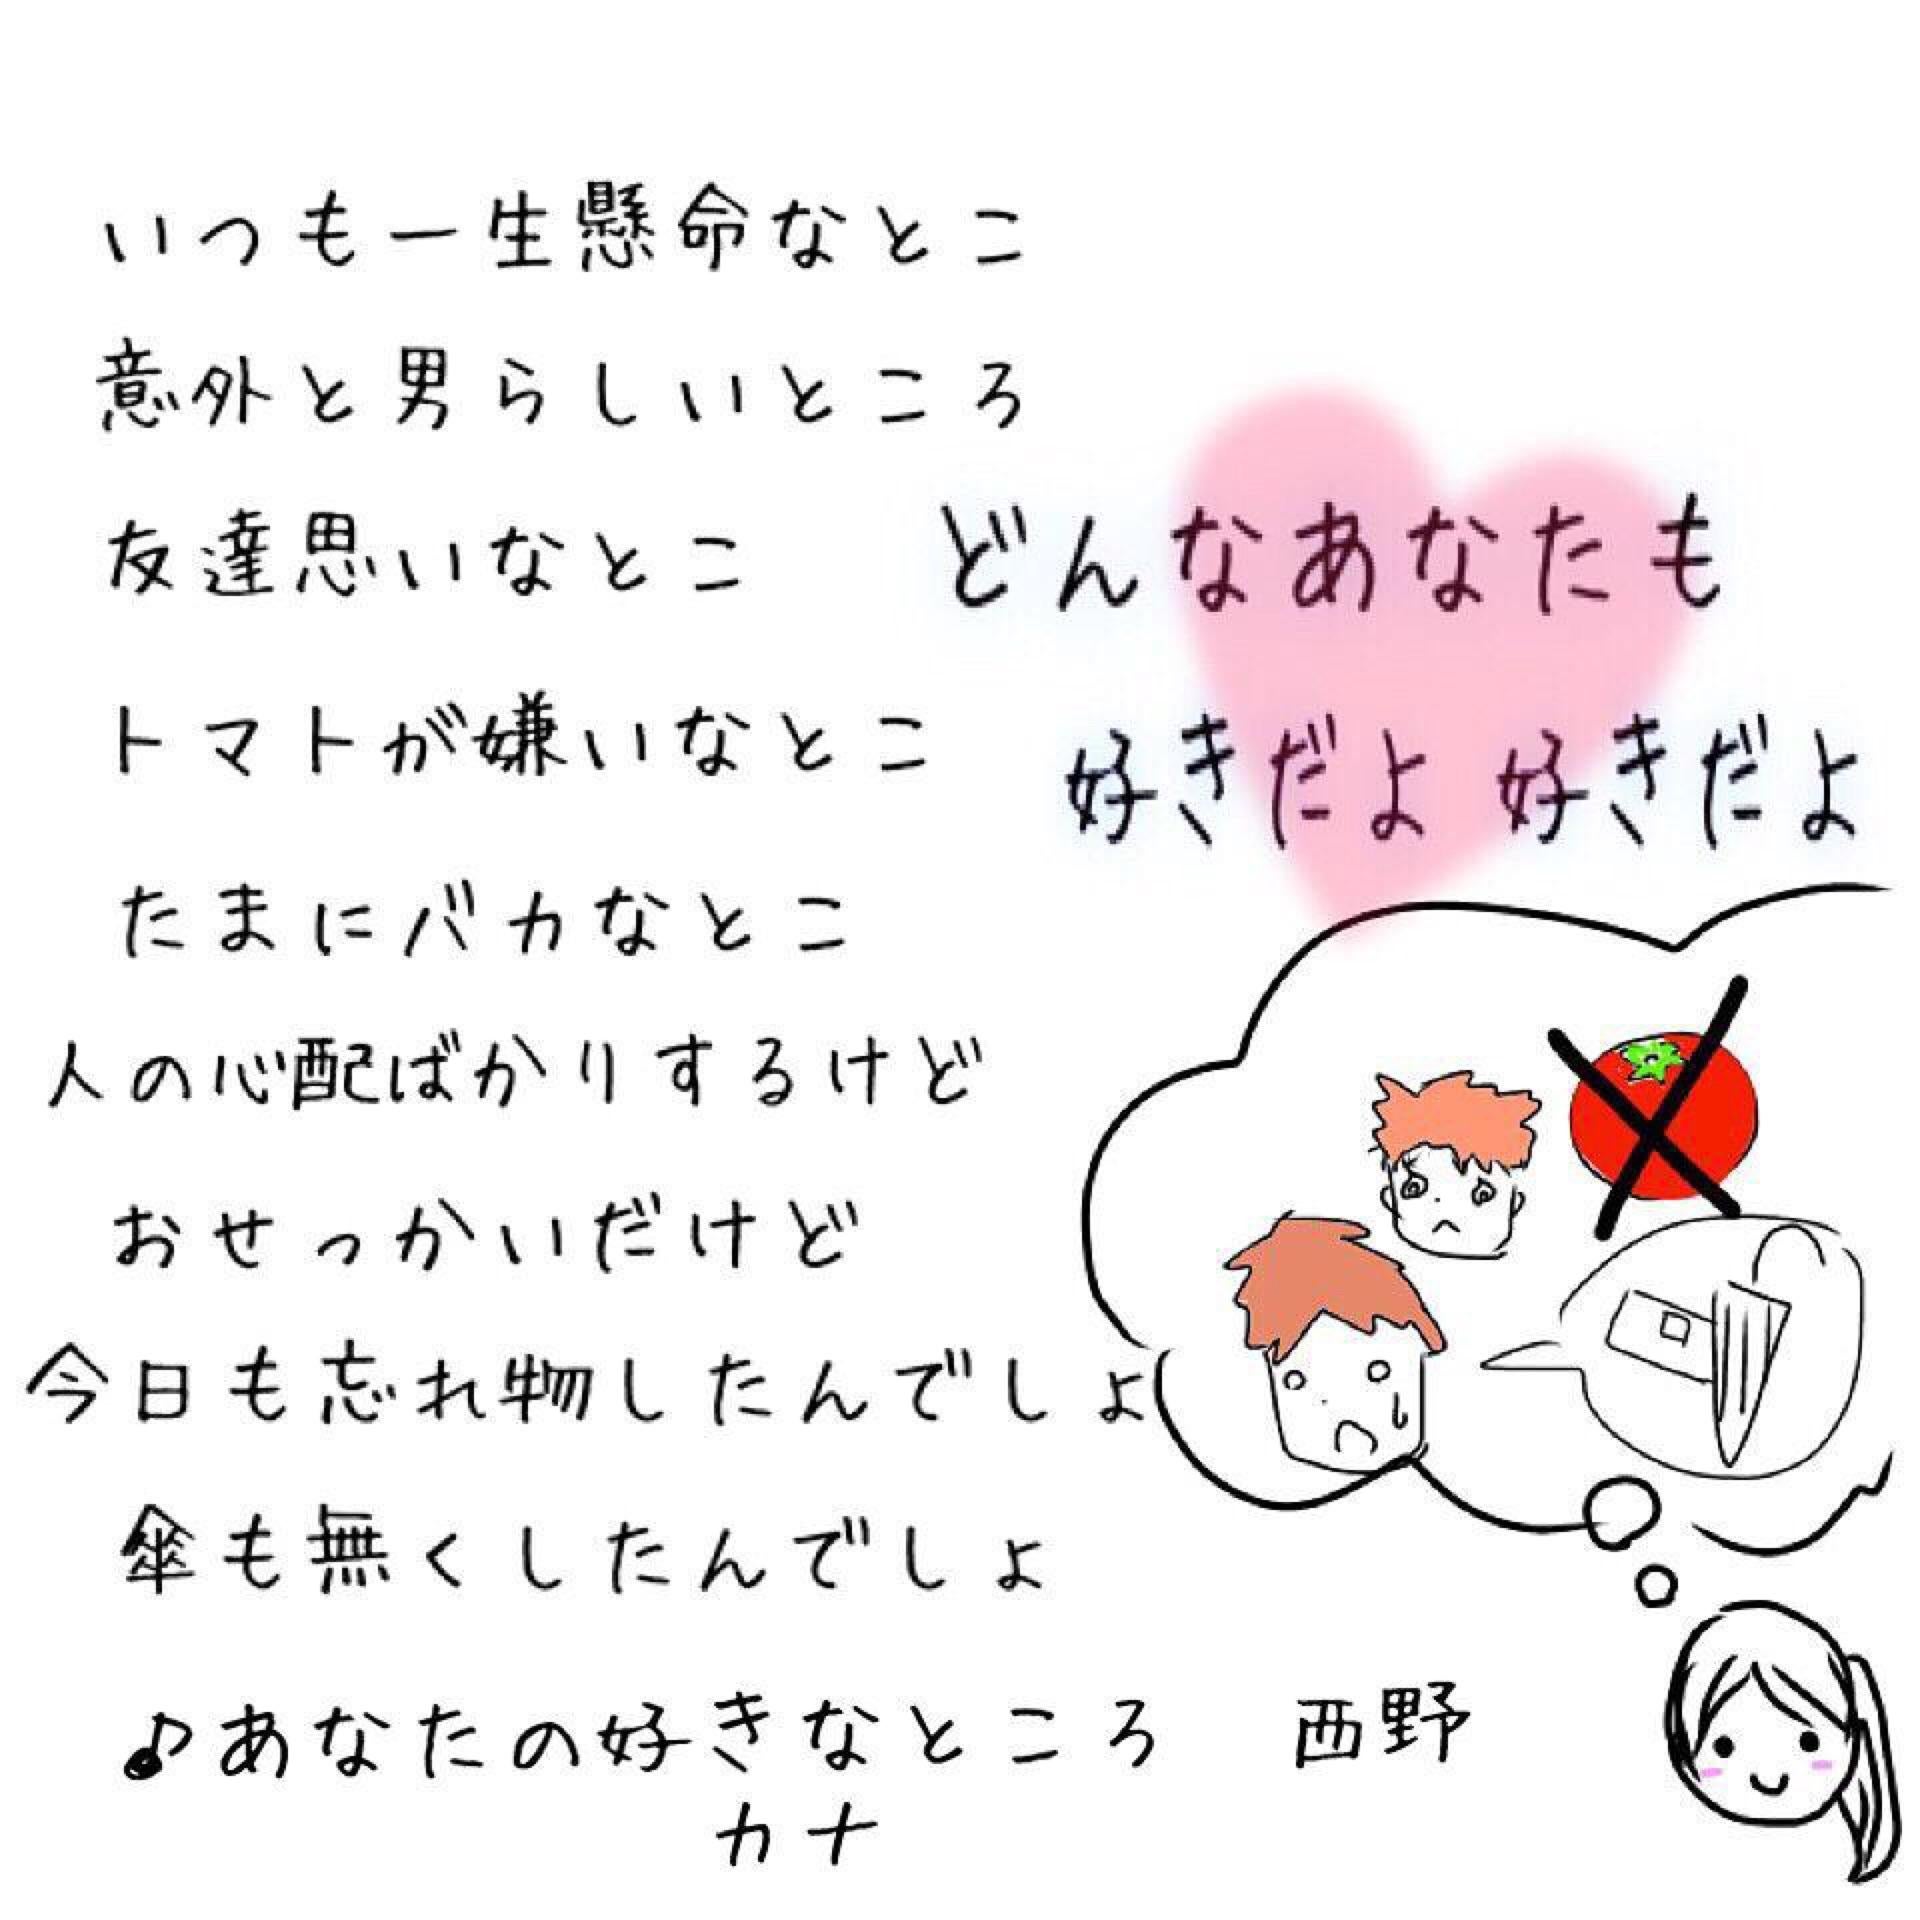 いつも一生懸命なとこ
意外と男らしいところ
友達思いなとこ
トマトが嫌いなとこ
たまにバカなとこ
どんなあなたも
好きだよ 好きだよ
人の心配ばかりするけど
おせっかいだけど
今日も忘れ物したんでしょ
傘も無くしたんでしょ
♪あなたの好きなところ 西野
カナ